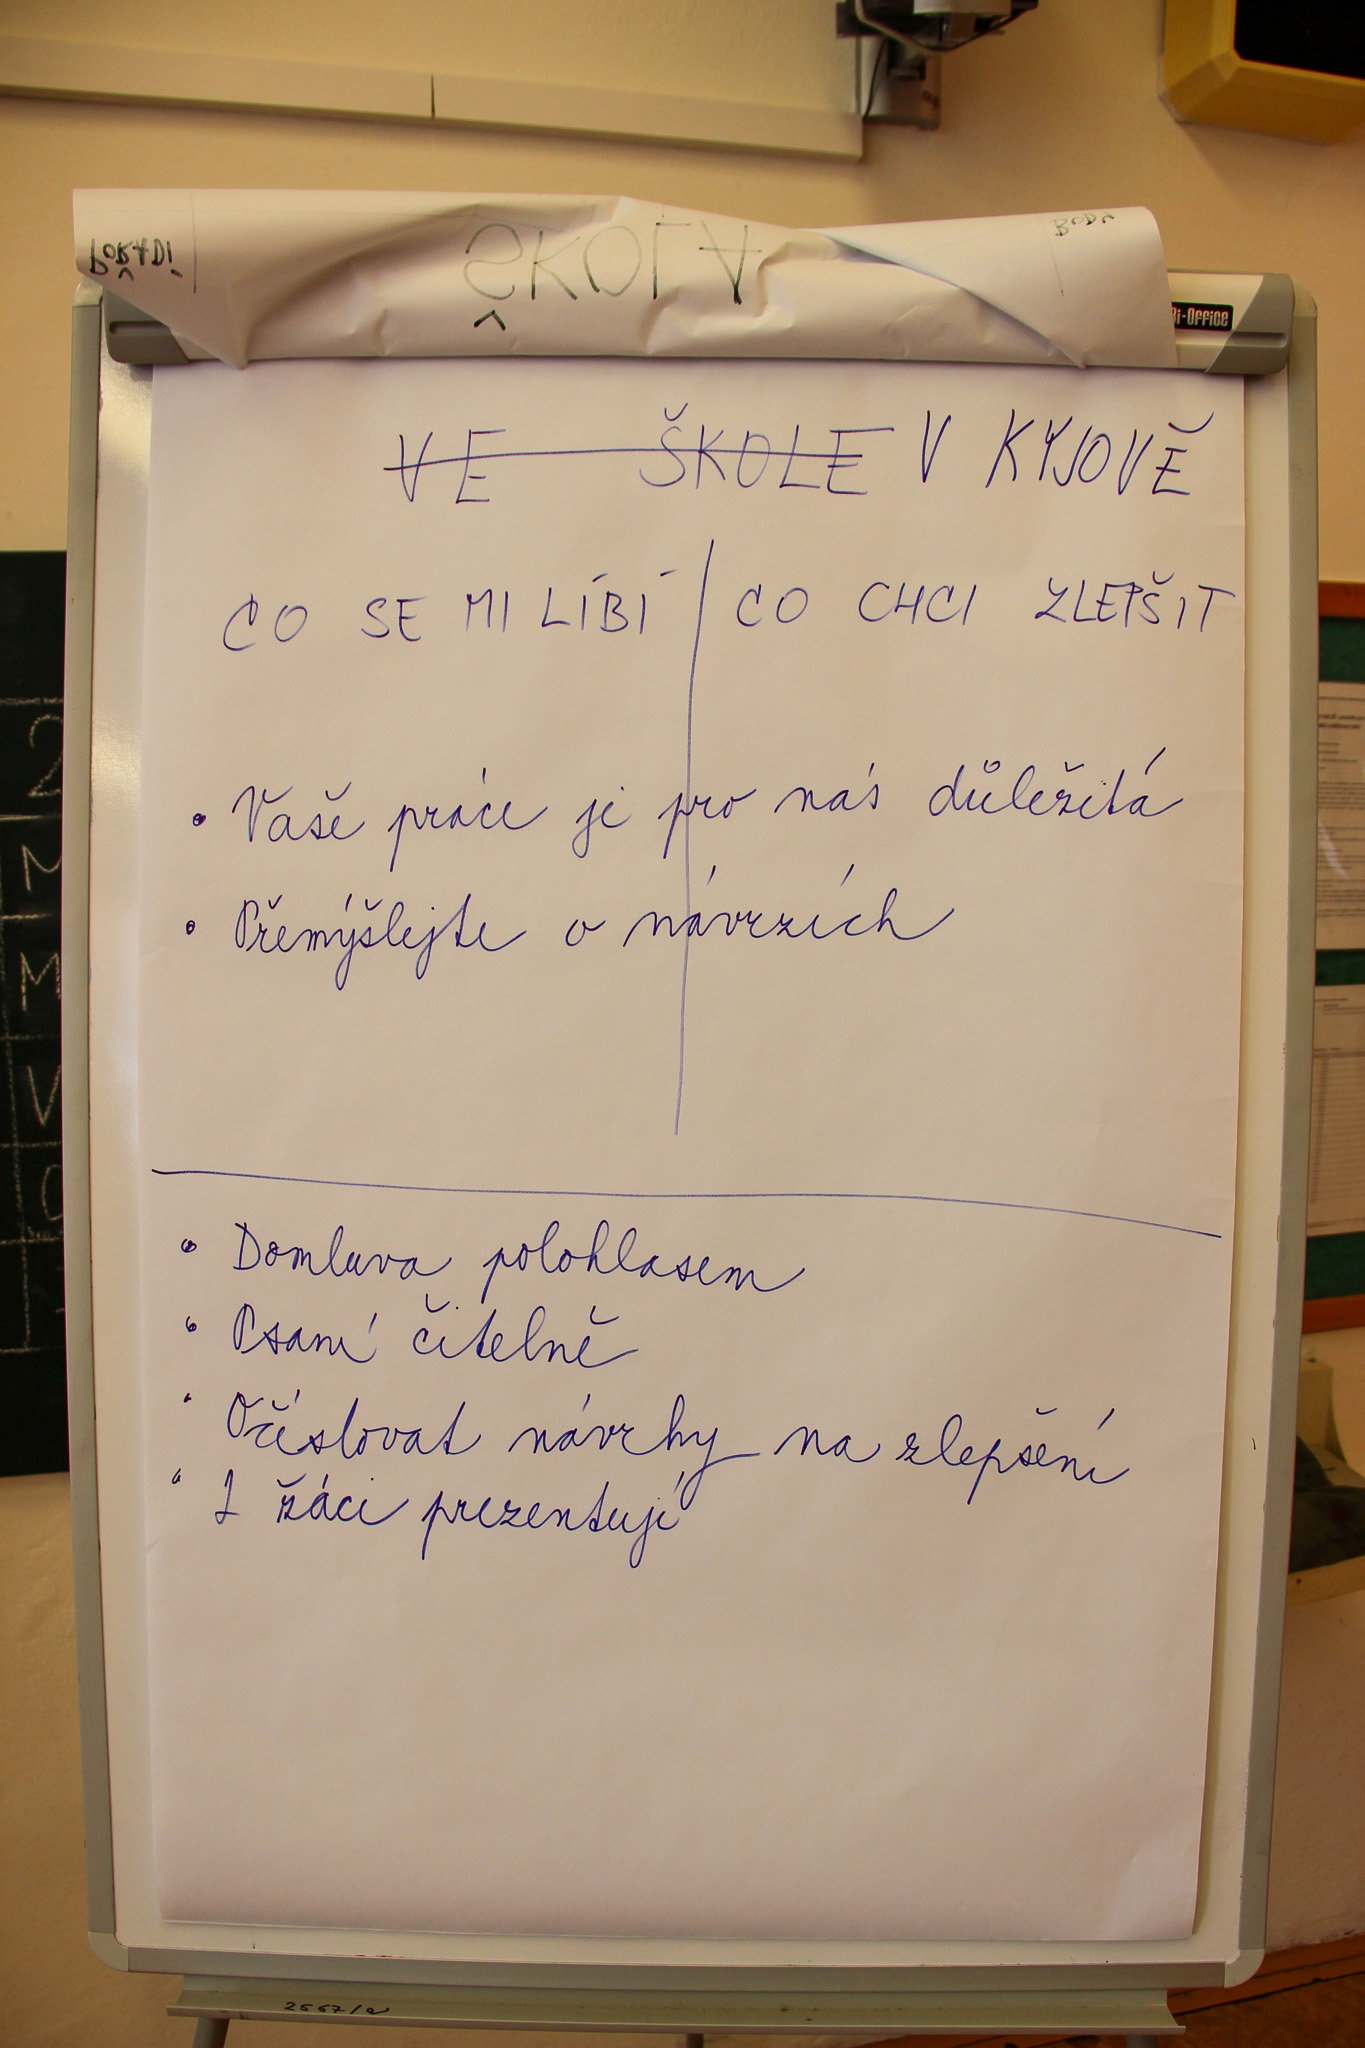 POŘADÍ
ŠKOLA
BODY
Bi-Office
VE ŠKOLE V KYJOVĚ
CO SE MI LÍBÍ CO CHCI ZLEPŠIT
• Vaše práce je pro nás důležitá
• Přemýšlejte o návrzích
• Domluva polohlasem
• Psaní čitelně
• Očíslovat návrhy na zlepšení
• 2 žáci prezentují
2
M
M
V
2557/a